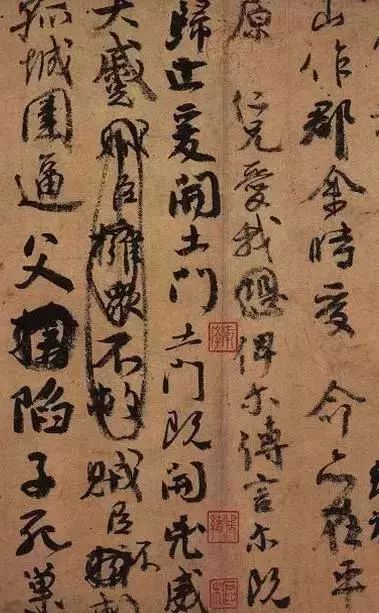 山作郡余時受命亦在平
原仁兄愛我俾尔傳言尔既
歸止爰開土門土門既開兇威
大蹙賊臣擁眾不救賊臣不
孤城圍逼父陷子死巢